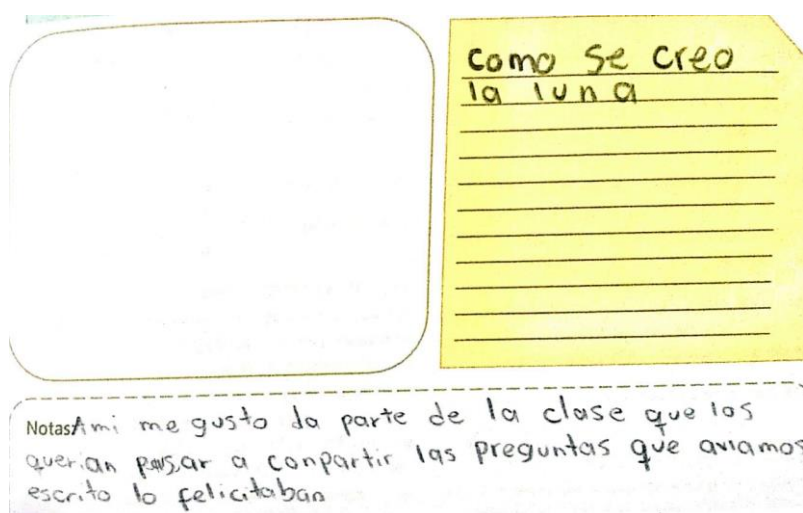 como se creo
la luna
Notas: Ami me gusto da parte de la clase que los
querian pasar a conpartir las preguntas que aviamos
escrito lo felicitaban